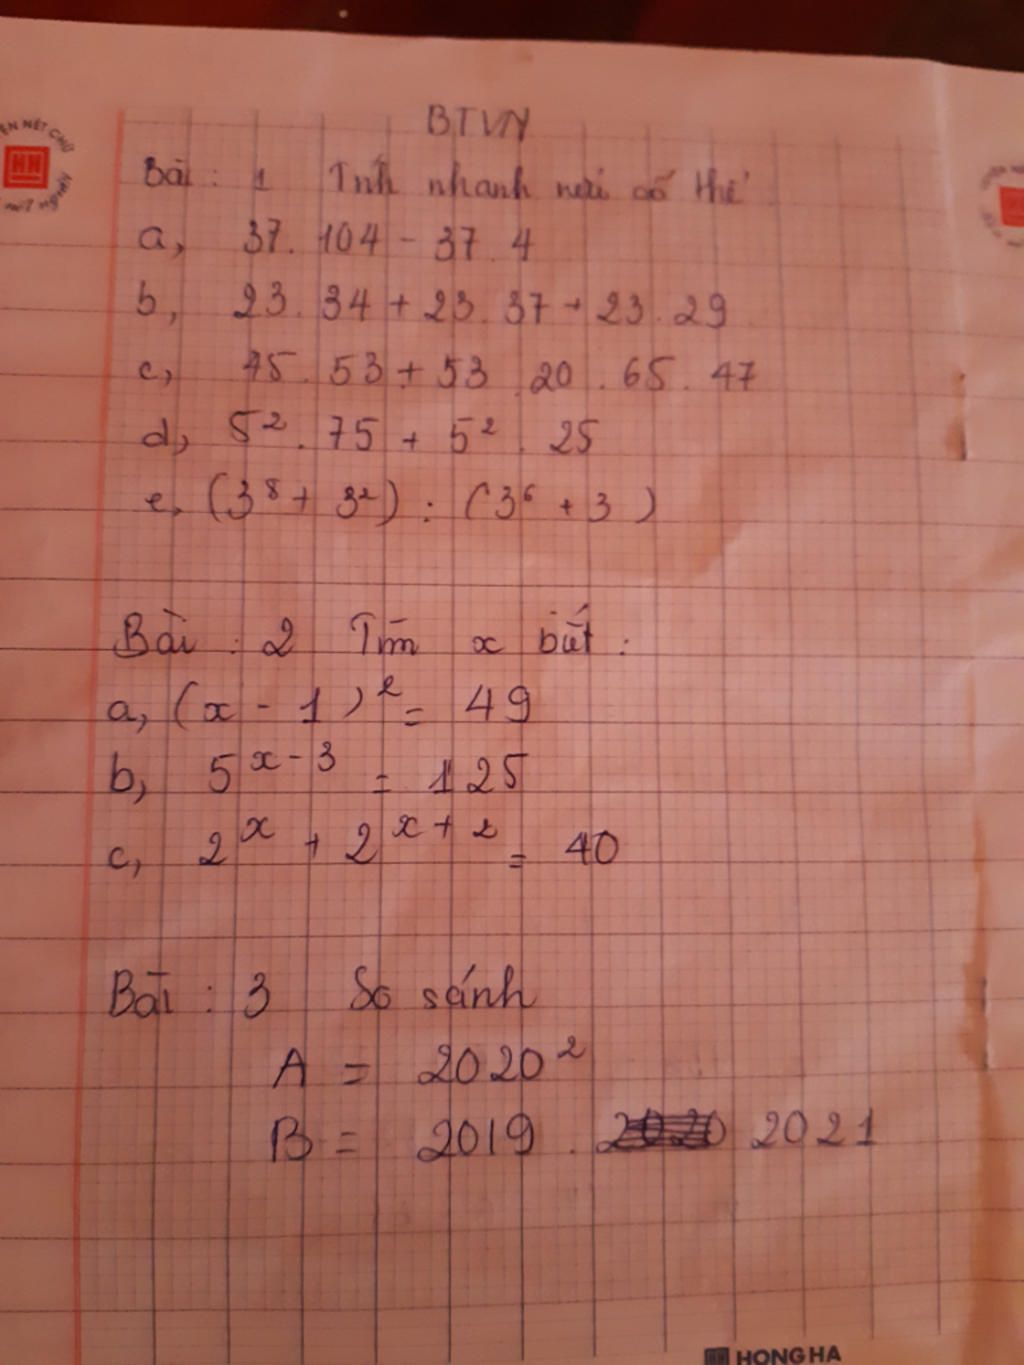 BTVN
Bài : 1 Tính nhanh nếu có thể
a, 37 . 104 - 37 . 4
b, 23 . 34 + 23 . 37 + 23 . 29
c, 45 . 53 + 53 . 20 . 65 . 47
d, 5² . 75 + 5² . 25
e, (3⁸ + 3²) : (3⁶ + 3)
Bài : 2 Tìm x biết :
a, (x - 1)² = 49
b, 5^{x-3} = 125
c, 2^x + 2^{x+2} = 40
Bài : 3 So sánh
A = 2020²
B = 2019 . 2021
HONG HA